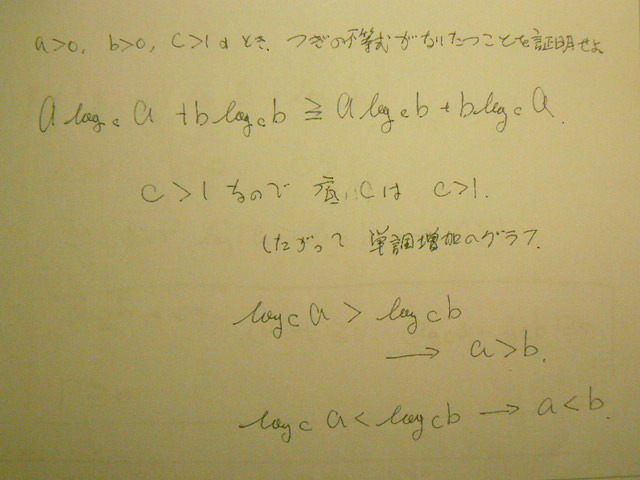 a>0, b>0, c>1のとき、つぎの不等式がなりたつことを証明せよ
a log_c a + b log_c b ≧ a log_c b + b log_c a.
c>1なので 底 cは c>1.
したがって 単調増加のグラフ.
log_c a > log_c b
→ a>b.
log_c a < log_c b → a<b.